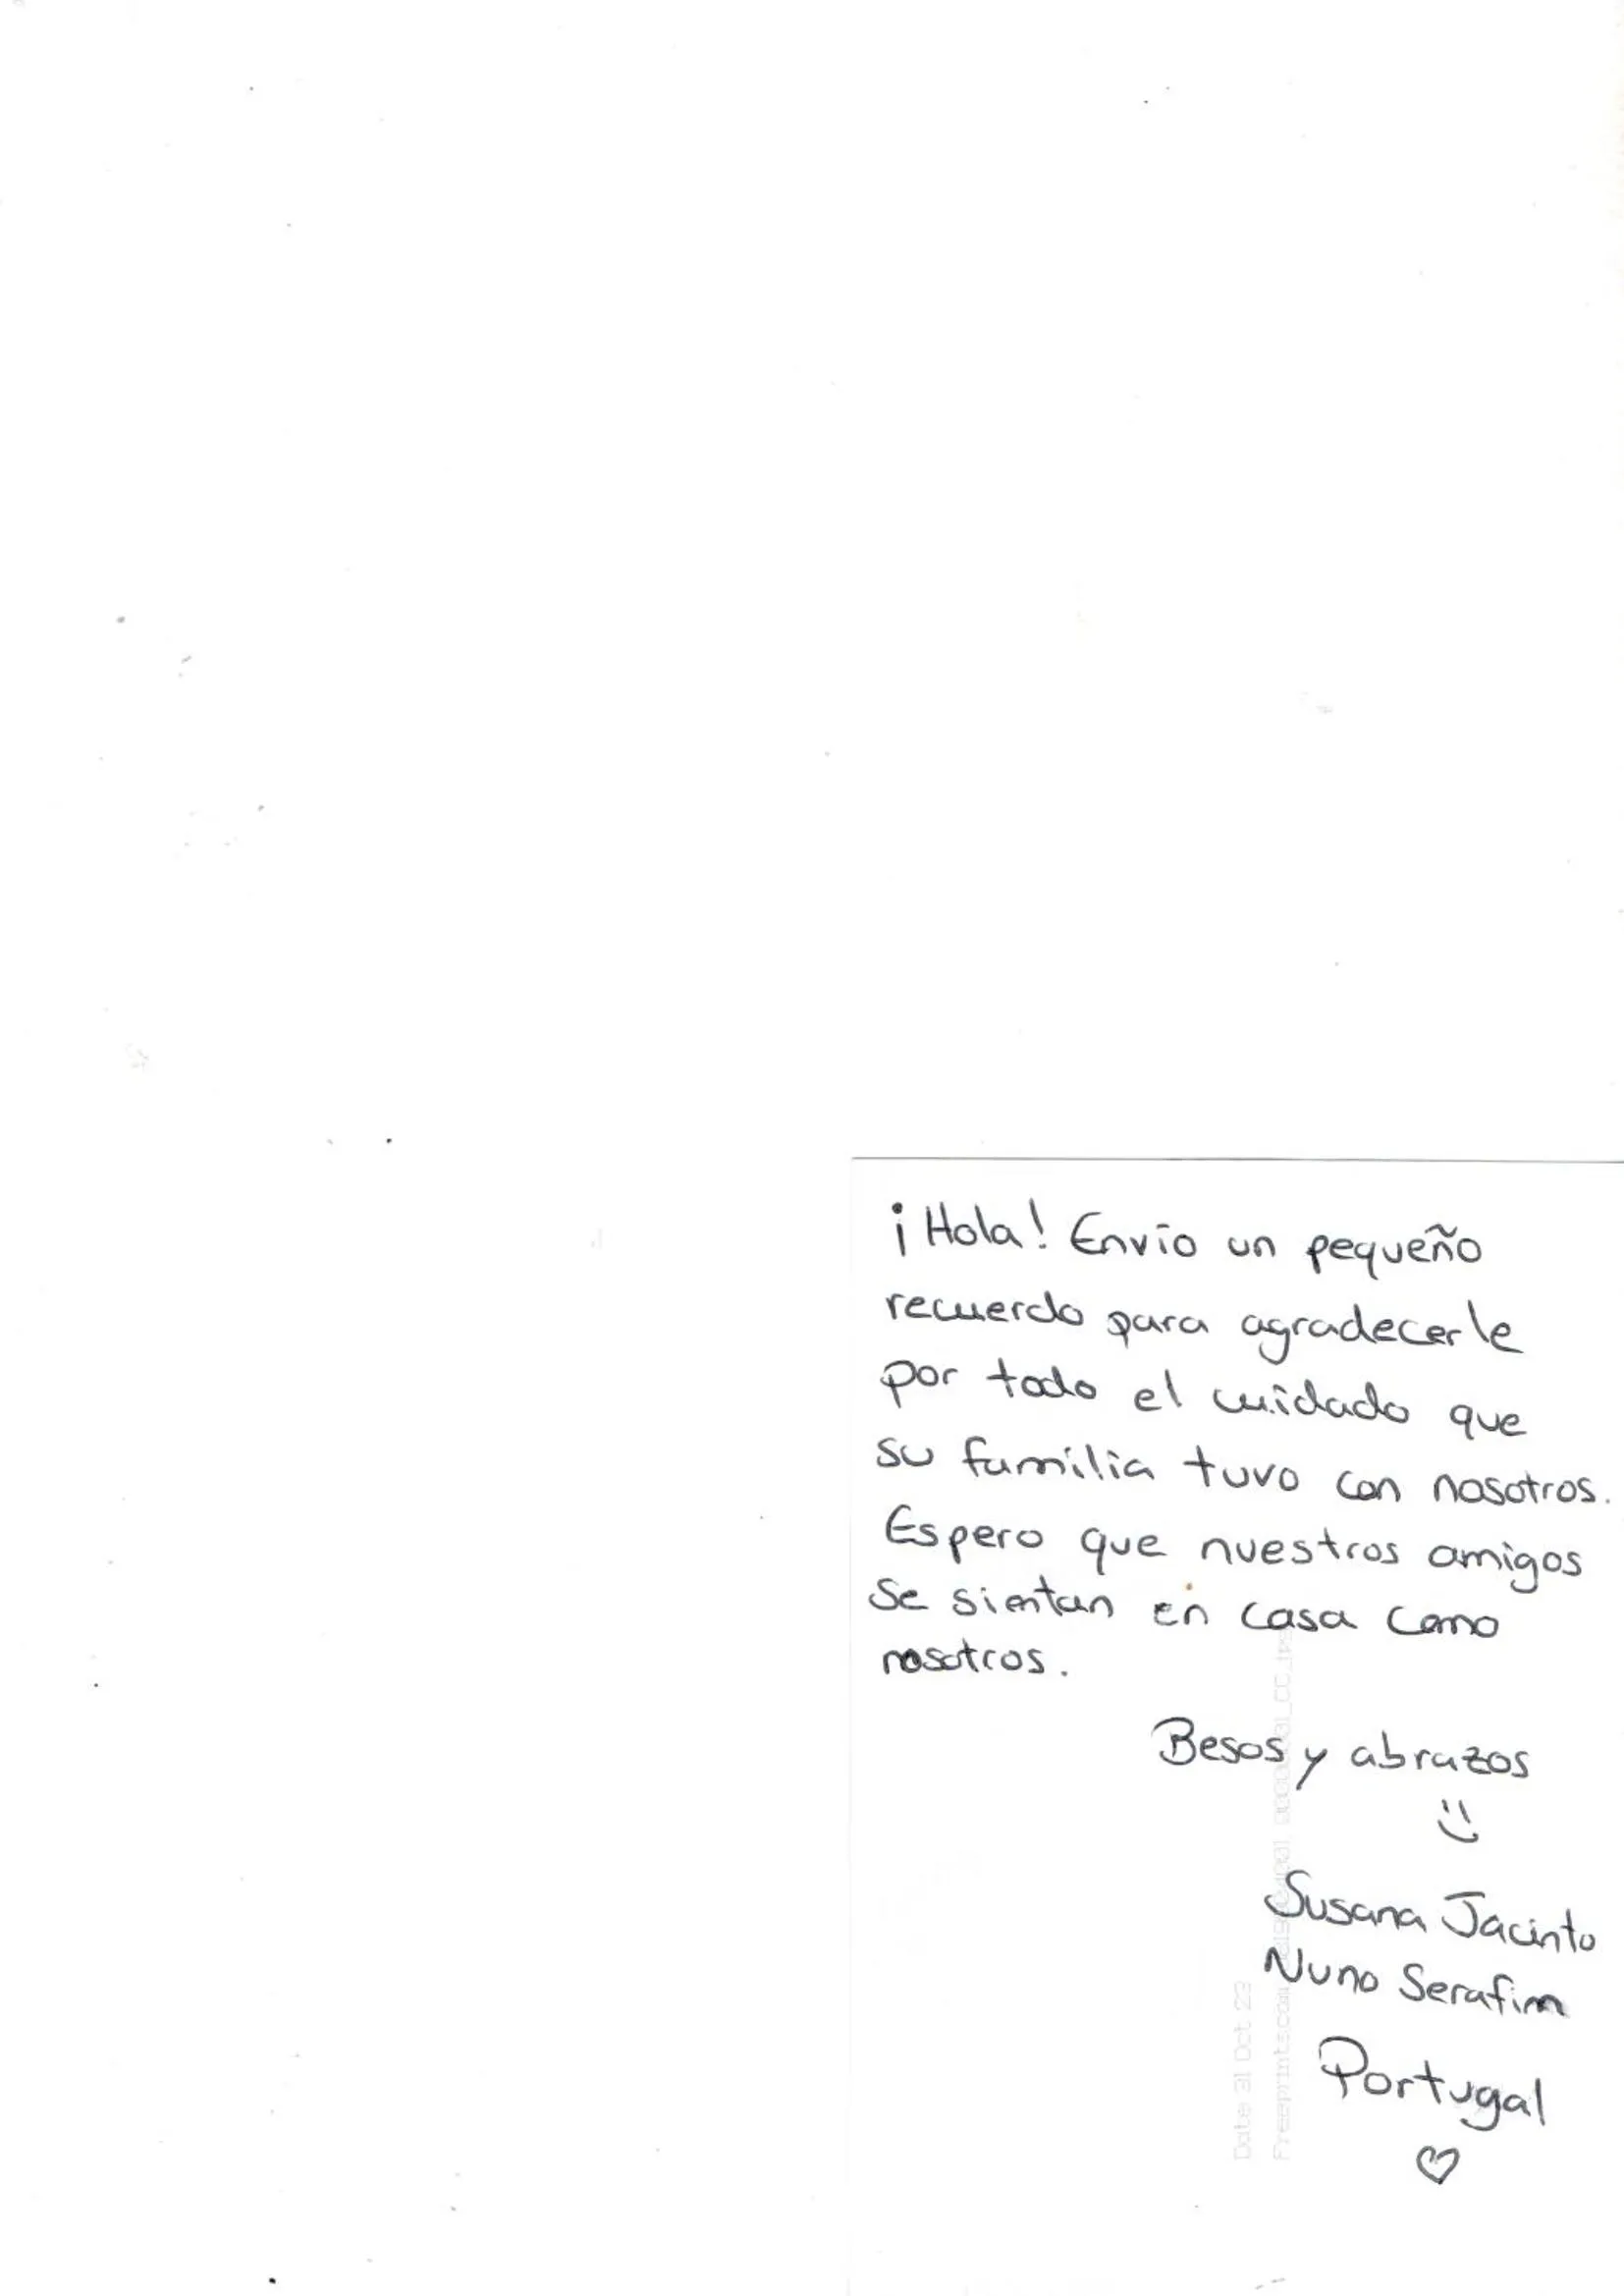 ¡Hola! Envio un pequeño
recuerdo para agradecerle
por todo el cuidado que
su familia tuvo con nosotros.
Espero que nuestros amigos
se sientan en casa como
nosotros.
Besos y abrazos
Susana Jacinto
Nuno Serafim
Portugal
Date 31 Oct 23
Freeprints.com